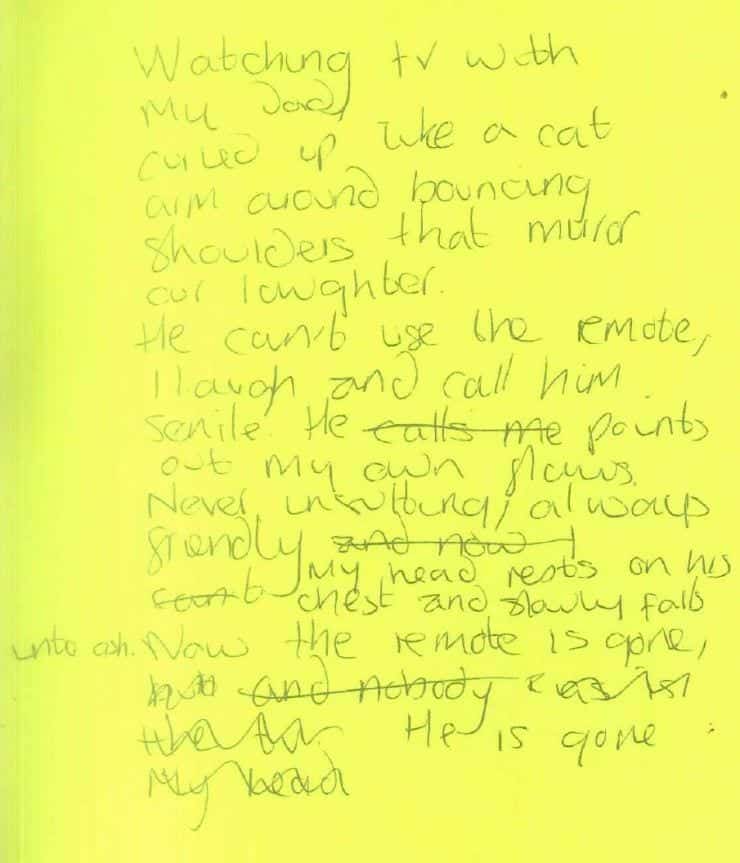 Watching tv with
My Dad,
curled up like a cat
arm around bouncing
shoulders that mirror
our laughter.
He can't use the remote,
I laugh and call him
senile. He calls me points
out my own flaws.
Never insulting, always
friendly and now I
can't My head rests on his
chest and slowly falls
into ash. Now the remote is gone,
but and nobody
He is gone
My head